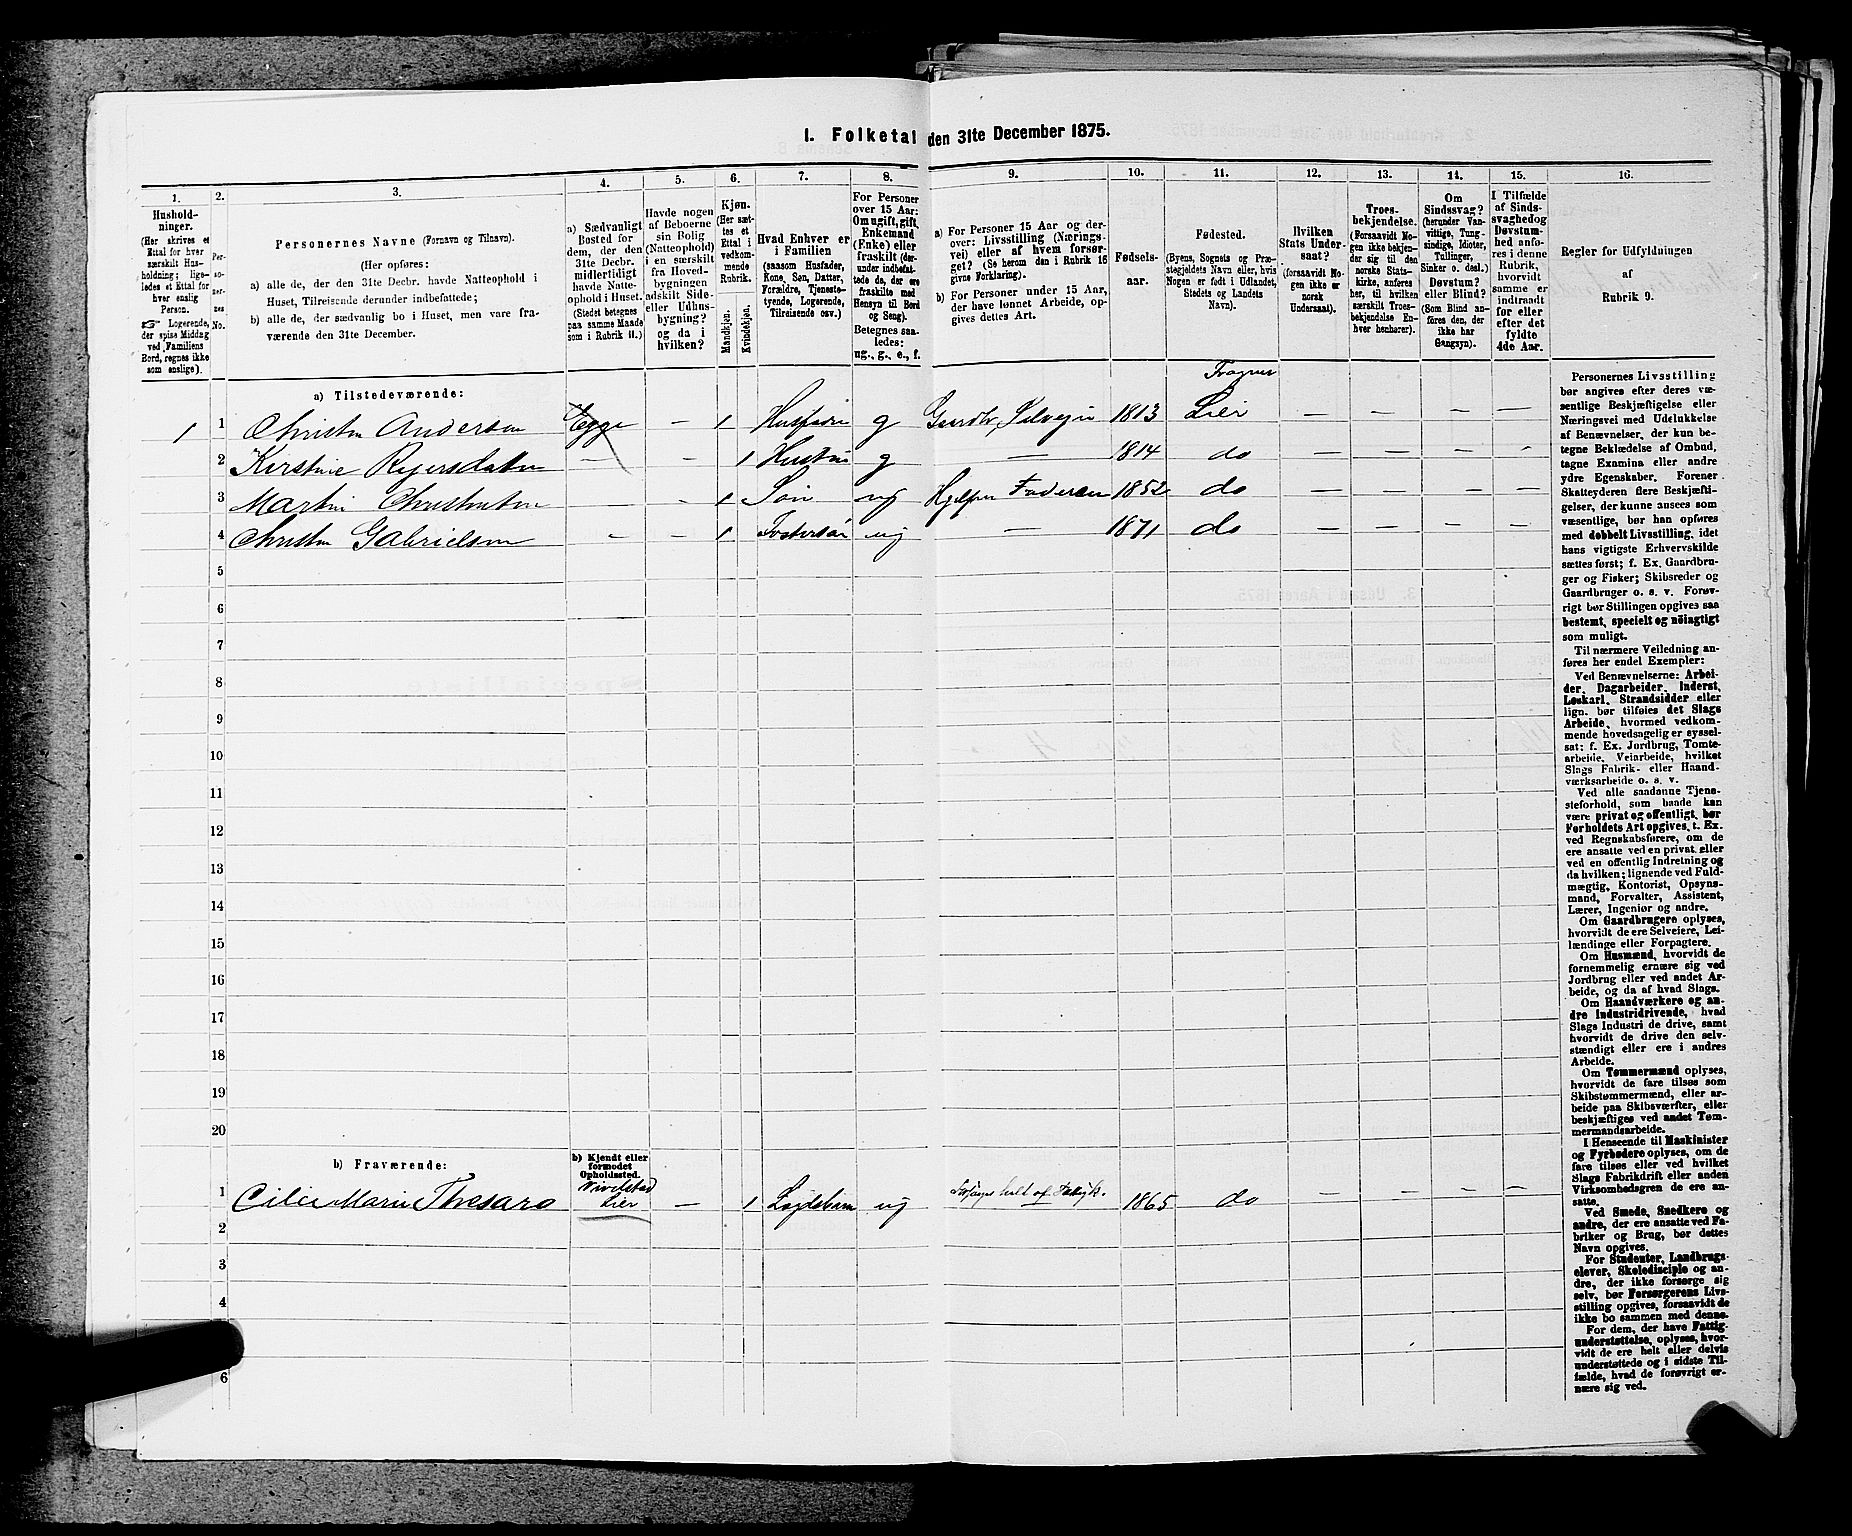 I. Folketal den 31te December 1875.
1. 2. 3. 4. 5. 6. 7. 8. 9. 10. 11. 12. 13. 14. 15. 16.
Hushold-
ninger.
(Her skrives et
Ettal for hver
særskilt Hus-
holdning; lige-
ledes et Ettal for
hver enslig
Person.
☞ Logerende,
der spise Middag
ved Familiens
Bord, regnes ikke
som enslige).
Per-
so-
ner-
nes
No.
Personernes Navne (Fornavn og Tilnavn).
(Her opføres:
a) alle de, der den 31te Decbr. havde Natteophold i
Huset, Tilreisende derunder indbefattede;
b) alle de, der sædvanlig bo i Huset, men vare fra-
værende den 31te December.
a) Sædvanligt
Bosted for
dem, der den
31te Decbr.
midlertidigt
havde Natte-
ophold i Huset.
(Stedet betegnes
paa samme Maade
som i Rubrik 11.)
Havde nogen
af Beboerne
sin Bolig
(Natteophold)
i en særskilt
fra Hoved-
bygningen
adskilt Side-
eller Udhus-
bygning?
og da i
hvilken?
Kjøn.
(Her sæt-
tes et
Ettal i
vedkom-
mende
Rubrik.
Mandkjøn.
Kvindekjøn.
Hvad Enhver er
i Familien
(saasom Husfader,
Kone, Søn, Datter,
Forældre, Tjeneste-
tyende, Logerende,
Tilreisende osv.)
For Personer
over 15 Aar:
Om ugift, gift,
Enkemand
(Enke) eller
fraskilt (der-
under indbefat-
tede de, der ere
fraskilte med
Hensyn til Bord
og Seng).
Betegnes saa-
ledes:
ug., g., e., f.
a) For Personer 15 Aar og der-
over: Livsstilling (Nærings-
vei) eller af hvem forsør-
get? (Se herom den i Rubrik 16
givne Forklaring).
b) For Personer under 15 Aar,
der have lønnet Arbeide, op-
gives dettes Art.
Fødsels-
aar.
Fødested.
(Byens, Sognets og Præ-
stegjeldets Navn eller, hvis
Nogen er født i Udlandet,
Stedets og Landets
Navn).
Hvilken
Stats Under-
saat?
(forsaavidt No-
gen ikke er
norsk
Undersaat).
Troes-
bekjendelse.
(Forsaavidt No-
gen ikke bekjen-
der sig til den
norske Stats-
kirke, anføres
her, til hvilken
særskilt Troes-
bekjendelse En-
hver henhører).
Om
Sindssvag?
(herunder Van-
vittige, Tung-
sindige, Idioter,
Tullinger,
Sinker o. desl.)
Døvstum?
eller Blind?
(Som Blind an-
føres den, der
ikke har
Gangsyn).
I Tilfælde
af Sinds-
svaghed og
Døvstum-
hed anfø-
res i denne
Rubrik,
hvorvidt
samme er
indtraadt
før eller
efter det
fyldte
4de Aar.
Regler for Udfyldningen
af
Rubrik 9.
a) Tilstedeværende:
Tragner
1 1 Christen Andersen Egge – 1 Husfader g Gaardbr, Selvejer 1813 Lier – – – –
2 Kirstine Rejersdatter – – 1 Hustru g – 1814 do – – – –
3 Martin Christensen – 1 Søn ug Hjelper Faderen 1852 do – – – –
4 Christen Gabrielsen – – 1 Fostersøn ug – 1871 do – – – –
5
6
7
8
9
10
11
12
13
14
15
16
17
18
19
20
b) Fraværende:
b) Kjendt eller
formodet
Opholdssted.
1 Cilie Marie Thesaro
Lier – 1 Lægdsbarn ug helt af 1865 do – – – –
2
3
4
6
Personernes Livsstilling
bør angives efter deres væ-
sentlige Beskjæftigelse eller
Næringsvei med Udelukkelse
af Benævnelser, der kun be-
tegne Beklædelse af Ombud,
tagne Examina eller andre
ydre Egenskaber. Forener
Skatteyderen flere Beskjæfti-
gelser, der kunne ansees som
væsentlige, bør han opføres
med dobbelt Livsstilling, idet
hans vigtigste Erhvervskilde
sættes først; f. Ex. Gaardbru-
ger og Fisker; Skibsreder og
Gaardbruger o. s. v. Forøv-
rigt bør Stillingen opgives saa
bestemt, specielt og nöiagtigt
som muligt.
Til nærmere Veiledning an-
føres her endel Exempler:
Ved Benævnelserne: Arbei-
der, Dagarbeider, Inderst,
Løskarl, Strandsidder eller
lign. bør tilføies det Slags
Arbeide, hvormed vedkom-
mende hovedsagelig er syssel-
sat; f. Ex. Jordbrug, Tomte-
arbeide, Veiarbeide, hvilket
Slags Fabrik- eller Haand-
værksarbeide o. s. v.
Ved alle saadanne Tjene-
steforhold, som baade kan
være privat og offentligt, bør
Forholdets Art opgives, t. Ex.
ved Regnskabsførere, om de
ere ansatte ved en privat eller
ved en offentlig Indretning og
da hvilken; lignende ved Fuld-
mægtig, Kontorist, Opsyns-
mand, Forvalter, Assistent,
Lærer, Ingeniør og andre.
Om Gaardbrugere oplyses,
hvorvidt de ere Selveiere, Lei-
lændinge eller Forpagtere.
Om Husmænd, hvorvidt de
fornemmelig ernære sig ved
Jordbrug eller ved andet Ar-
beide, og da af hvad Slags.
Om Haandværkere og an-
dre Industridrivende, hvad
Slags Industri de drive, samt
hvorvidt de drive den selv-
stændigt eller ere i andres
Arbeide.
Om Tømmermænd oplyses,
hvorvidt de fare tilsøs som
Skibstømmermænd, eller ar-
beide paa Skibsværfter, eller
beskjæftiges ved andet Tøm-
mermandsarbeide.
I Henseende til Maskinister
og Fyrbødere oplyses, om de
fare tilsøs eller ved hvilket
Slags Fabrikdrift eller anden
Virksomhedsgren de ere an-
satte.
Ved Smede, Snedkere og
andre, der ere ansatte ved Fa-
briker og Brug, bør dettes
Navn opgives.
For Studenter, Landbrugs-
elever, Skoledisciple og an-
dre, der ikke forsørge sig
selv, bør Forsørgerens Livs-
stilling opgives, forsaavidt de
ikke bo sammen med denne.
For dem, der have Fattig-
understøttelse, oplyses, hvor-
vidt de ere helt eller delvis
understøttede og i sidste Til-
fælde, hvad de forøvrigt er-
nære sig ved.